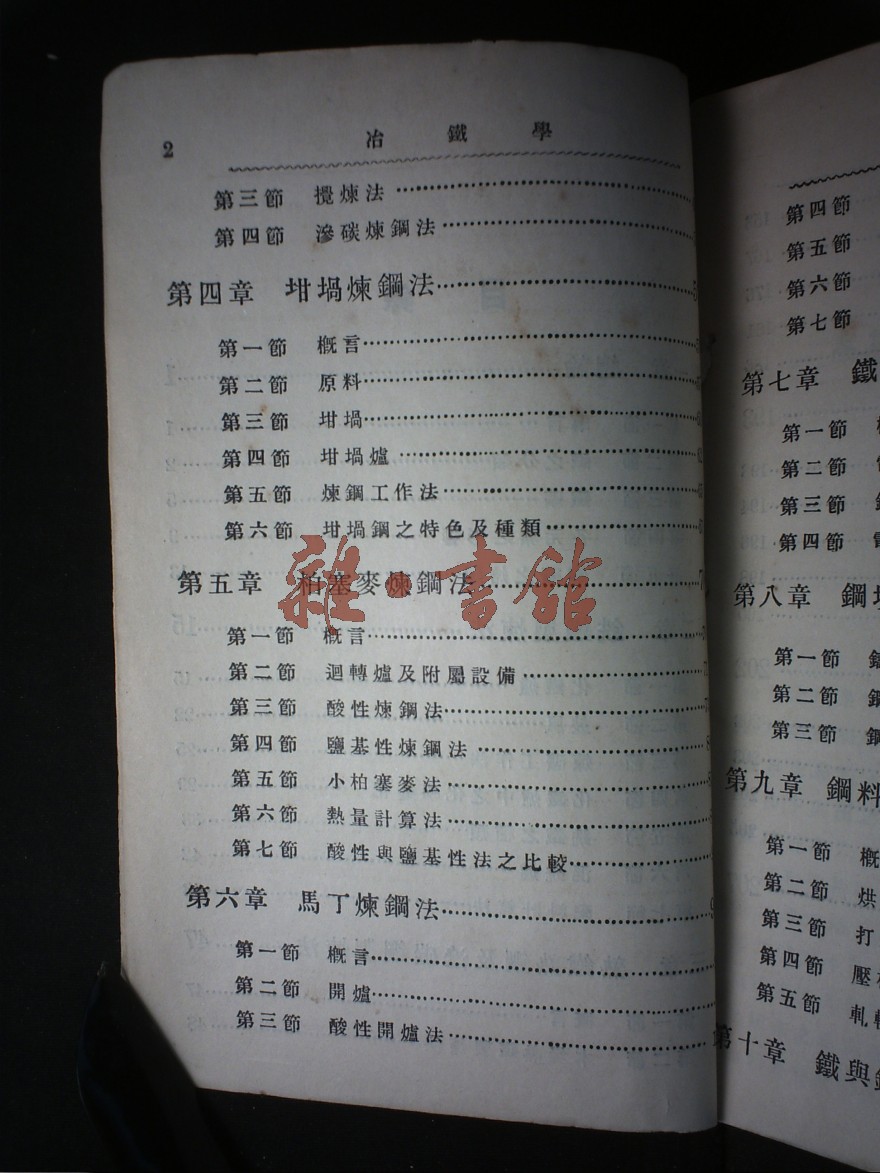 2 冶鐵學
第三節 攪煉法
第四節 滲碳煉鋼法
第四章 坩堝煉鋼法 5
第一節 概言
第二節 原料
第三節 坩堝
第四節 坩堝爐
第五節 煉鋼工作法
第六節 坩堝鋼之特色及種類
第五章 柏塞麥煉鋼法 7
第一節 概言
第二節 迴轉爐及附屬設備
第三節 酸性煉鋼法
第四節 鹽基性煉鋼法
第五節 小柏塞麥法
第六節 熱量計算法
第七節 酸性與鹽基性法之比較
第六章 馬丁煉鋼法 9
第一節 概言
第二節 開爐
第三節 酸性開爐法
雜·書館
第四節
第五節
第六節
第七節
第七章 鐵
第一節
第二節
第三節
第四節
第八章 鋼
第一節
第二節
第三節
第九章 鋼料
第一節 概
第二節 烘
第三節 打
第四節 壓
第五節 軋
第十章 鐵與